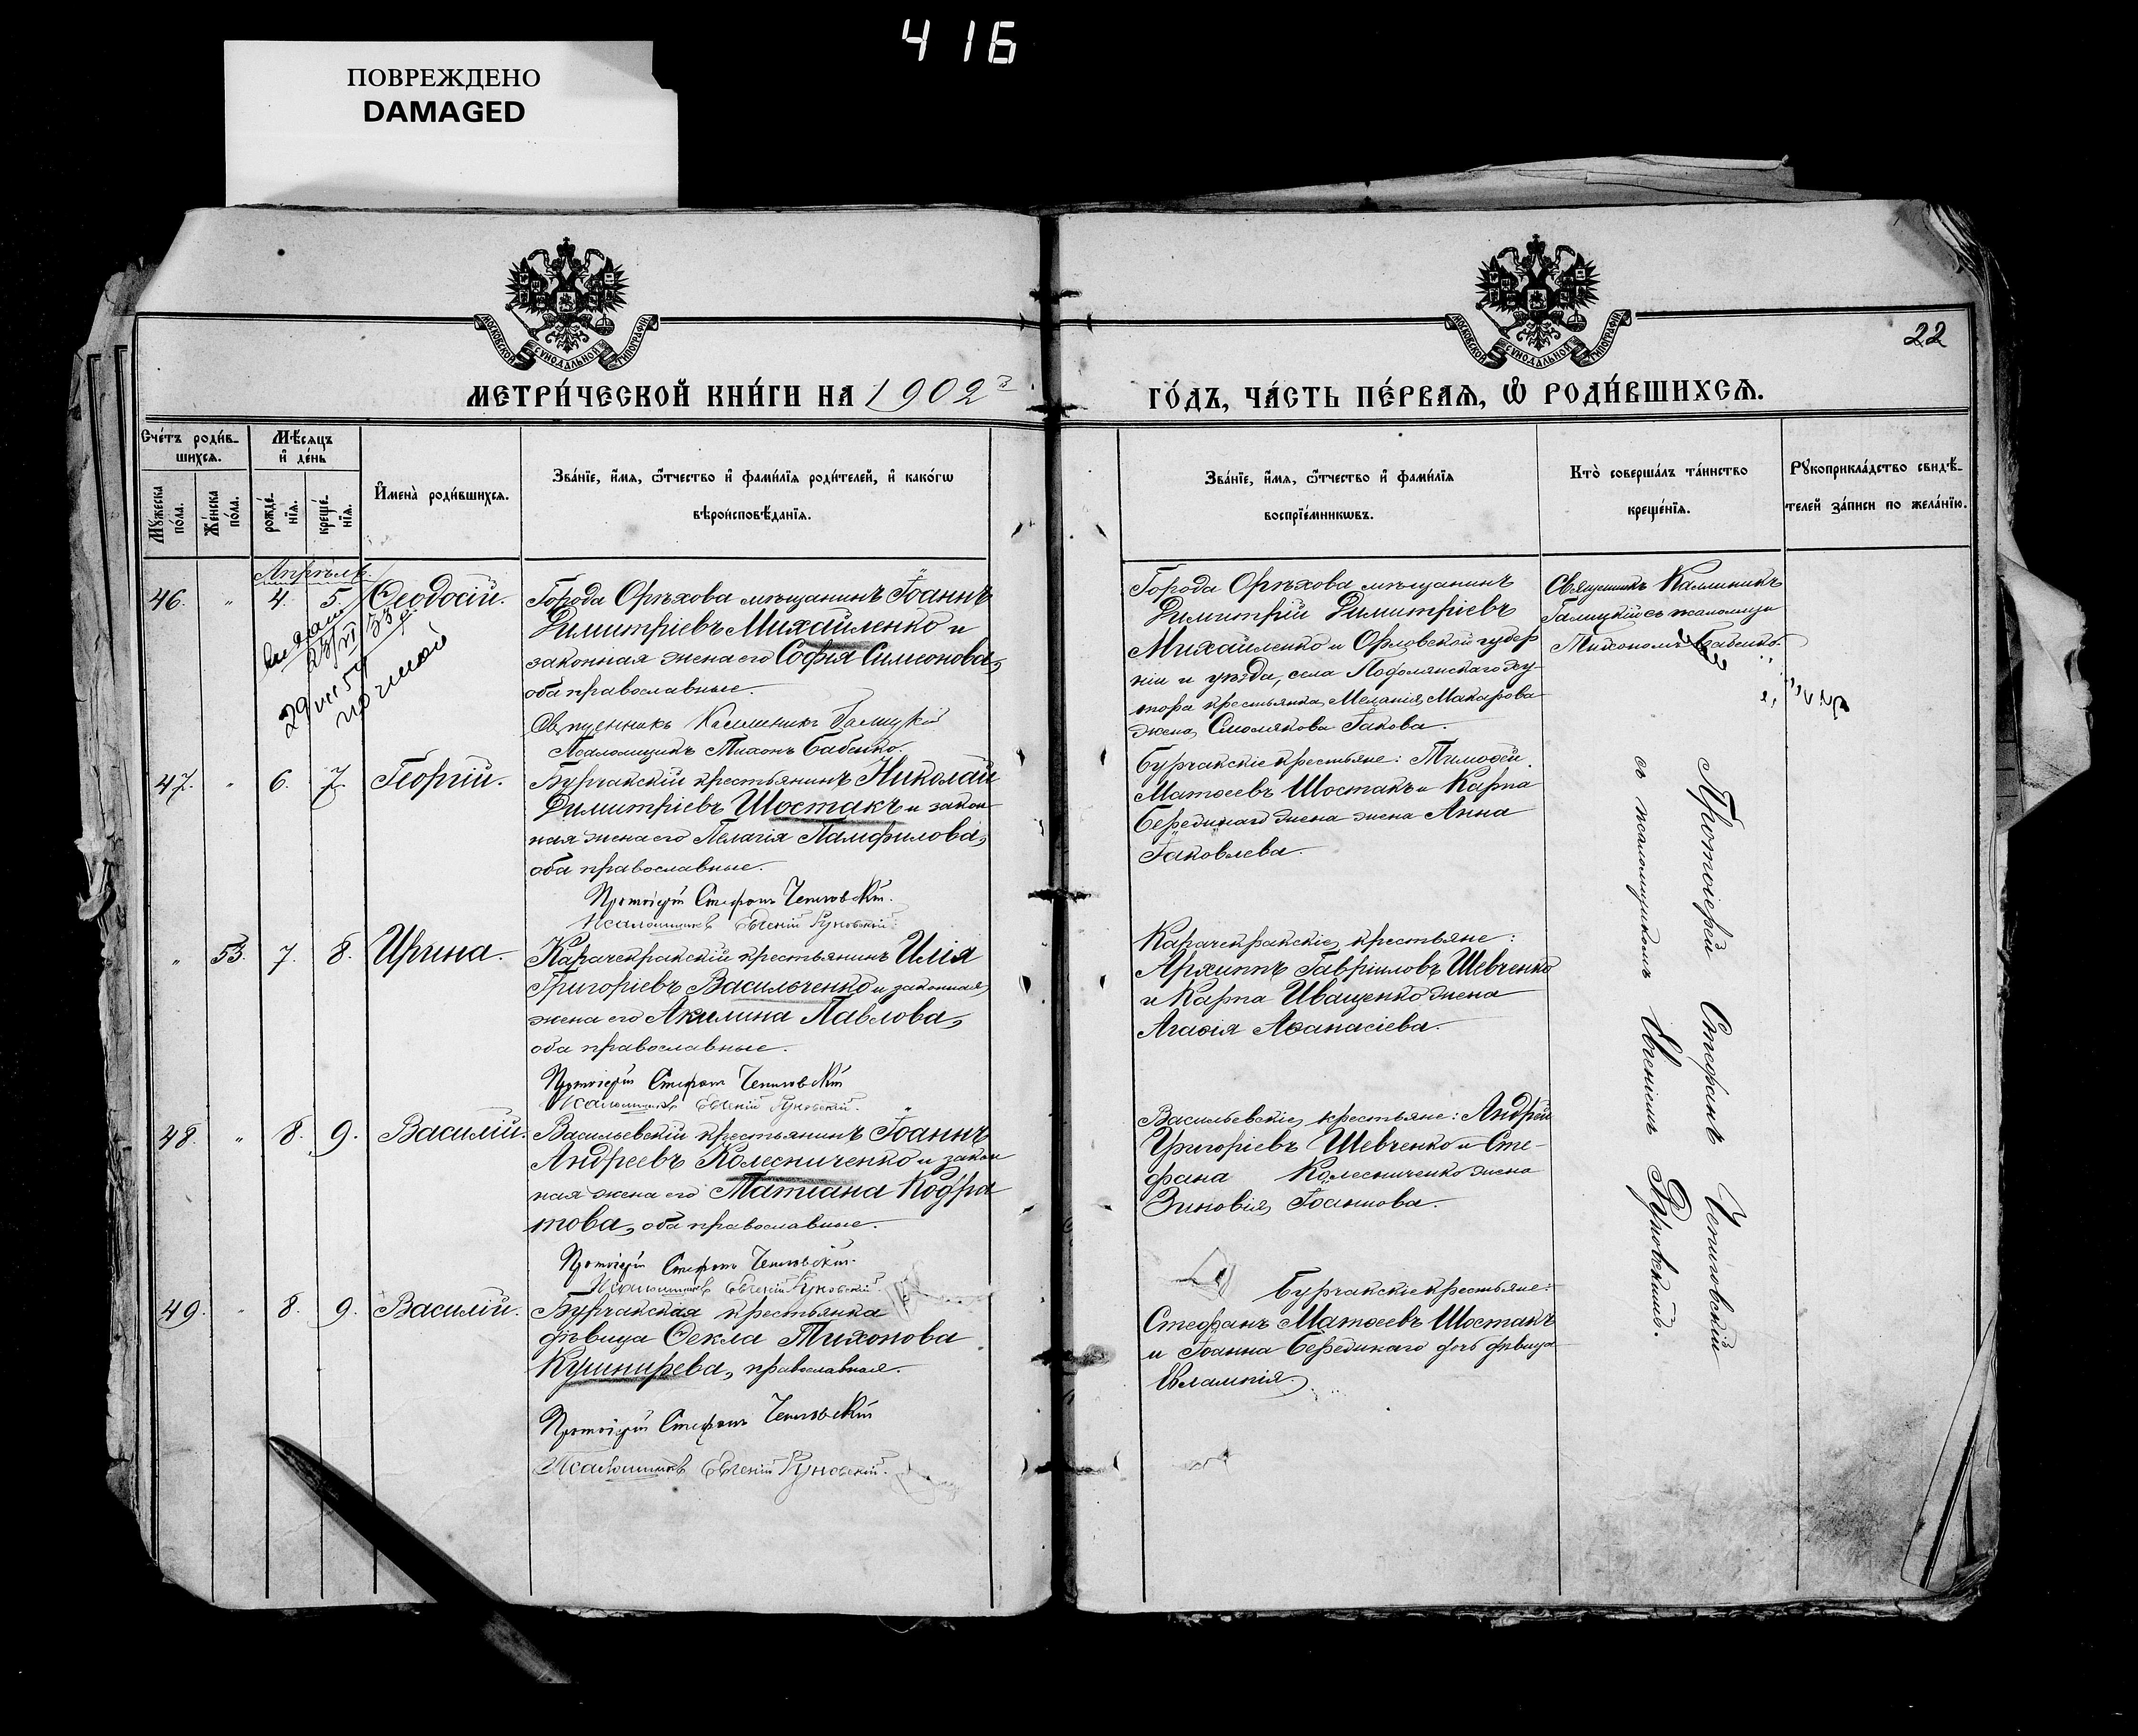 416
ПОВРЕЖДЕНО
DAMAGED
МОСКОВСКОЙ СѴНОДАЛЬНОЙ ТИПОГРАФІИ
МОСКОВСКОЙ СѴНОДАЛЬНОЙ ТИПОГРАФІИ
22
МЕТРИ́ЧЕСКОЙ КНИ́ГИ НА 1902 г
ГО́ДЪ, ЧА́СТЬ ПЕ́РВАЯ, Ѡ РОДИ́ВШИХСЯ.
Сче́тъ роди́в-
шихся.
Му́жеска по́ла.
Же́нска по́ла.
Мѣ́сяцъ
и де́нь
рожде́-
нія.
креще́-
нія.
И҆мена̀ роди́вшихся.
Зва́ніе, и҆́мя, ѻ҆́тчество и҆ фами́лія роди́телей, и҆ како́гѡ
вѣроисповѣ́данія.
Зва́ніе, и҆́мя, ѻ҆́тчество и҆ фами́лія
воспріе́мникѡвъ.
Кто̀ соверша́лъ та́инство
креще́нія.
Рꙋкоприкла́дство свидѣ́-
телей за́писи по жела́нію.
Апрѣль
46. " 4. 5. Ѳеодосій.
Города Орѣхова мѣщанинъ Іоаннъ
Димитріевъ Михайленко и
законная жена его Софія Симеонова,
оба православные.
Священникъ Каллиникъ Галицкій
Псаломщикъ Тихонъ Бабенко.
29 VII 54
почтой
Города Орѣхова мѣщанинъ
Димитрій Димитріевъ
Михайленко и Орловской губер
ніи и уѣзда, села
крестьянка Меланія Макарова
жена Смолякова Іакова.
Священникъ Каллиникъ
Галицкій съ псаломщи
Тихономъ Бабенко.
47. " 6. 7. Георгій.
Бурчакскій крестьянинъ Николай
Димитріевъ Шостакъ и закон
ная жена его Пелагія Памфилова,
оба православные.
Протоіерей Стефанъ
Псаломщикъ Евгеній Руновскій.
Бурчакскіе крестьяне: Тимоѳей
Матѳеевъ Шостакъ и Карпа
Середицаго жена жена Анна
Іаковлева.
" 53. 7. 8. Ирина.
Карачекракскій крестьянинъ Илія
Григоріевъ Васильченко и законная
жена его Акилина Павлова,
оба православные.
Протоіерей Стефанъ
Псаломщикъ Евгеній Руновскій.
Карачекракскіе крестьяне:
Архиппъ Гавріиловъ Шевченко
и Карпа Иващенко жена
Агаѳія Аѳанасіева.
48. " 8. 9. Василій.
Васильевскій крестьянинъ Іоаннъ
Андреевъ Колесниченко и закон
ная жена его Татіана Кодра
това, оба православные.
Протоіерей Стефанъ
Псаломщикъ Евгеній Руновскій.
Васильевскіе крестьяне: Андрей
Григоріевъ Шевченко и Сте-
фана Колесниченко жена
Зиновія Іоаннова.
49. " 8. 9. Василій.
Бурчакская крестьянка
дѣвица Ѳекла Тихонова
Кушнирева, православная.
Протоіерей Стефанъ
Псаломщикъ Евгеній Руновскій.
Бурчакскіе крестьяне:
Стефанъ Матѳеевъ Шостакъ
и Іоанна Середицаго дочь дѣвица
Евлампія.
Протоіерей Стефанъ
съ псаломщикомъ Евгеніемъ Руновскимъ.